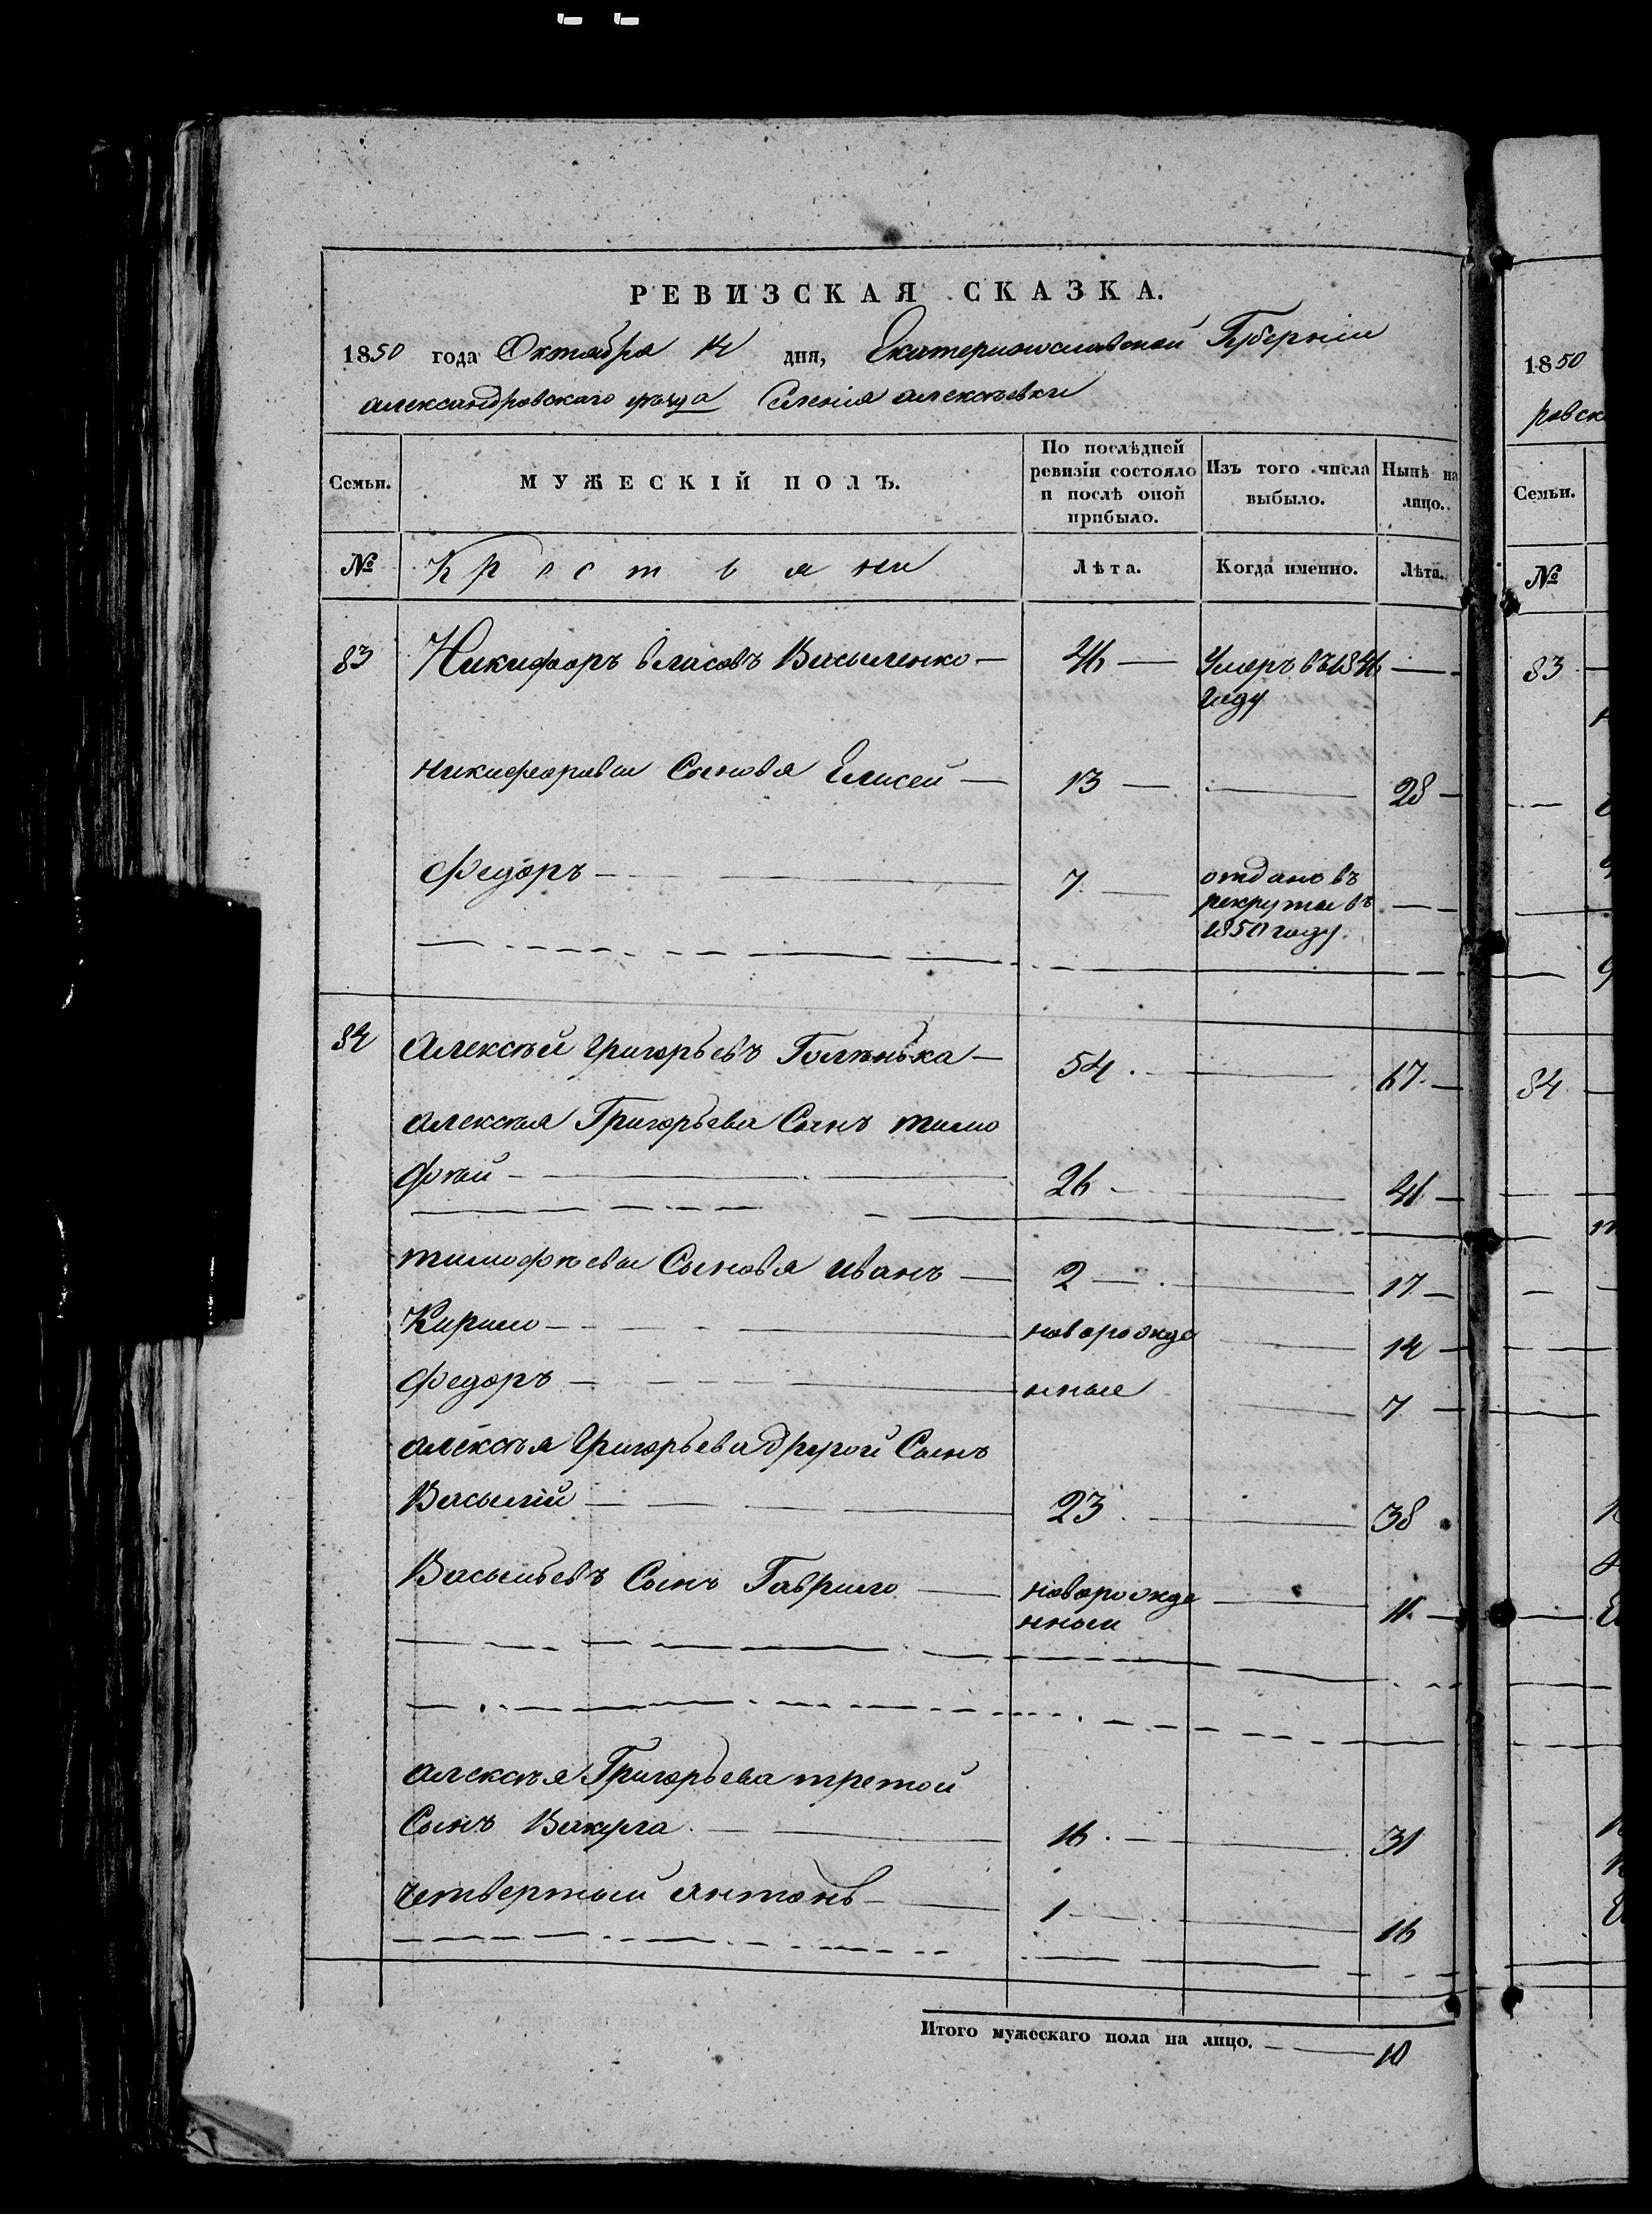 РЕВИЗСКАЯ СКАЗКА.
1850 года Октября 14 дня, Екатеринославской Губерніи
александровскаго уѣзда Селенія алексѣевки
Семьи. МУЖЕСКІЙ ПОЛЪ. По послѣдней ревизіи состояло и послѣ оной прибыло. Изъ того числа выбыло. Нынѣ на лицо.
№ Крестьяни Лѣта. Когда именно. Лѣта.
83 Никифоръ власовъ Васыленко — 46 — Умеръ въ 1846 —
году
никифоровы Сынова Елисей — 13 — — 28 —
Федоръ — 7 — отданъ въ
рекруты въ —
1850 году
84 Алексѣй григорьевъ Голѣнька — 54. — 67. —
алексѣя Григорьева Сынъ тимо
фѣй — 26 — 41 —
тимофѣевы Сыновя иванъ — 2 — 17 —
Кирило — новорожде — 14 —
Федоръ — нные — 7 —
алексѣя григорьева другой Сынъ
Васылій — 23. — 38
Васыльевъ Сынъ Гаврило — новорожде — 11 —
нный
алексѣя Григорьева третой
Сынъ Вакула — 16. — 31
четвертый антонъ — 1 — 16
Итого мужескаго пола на лицо. — 10
1850
ровск
Семьи.
№
83
84